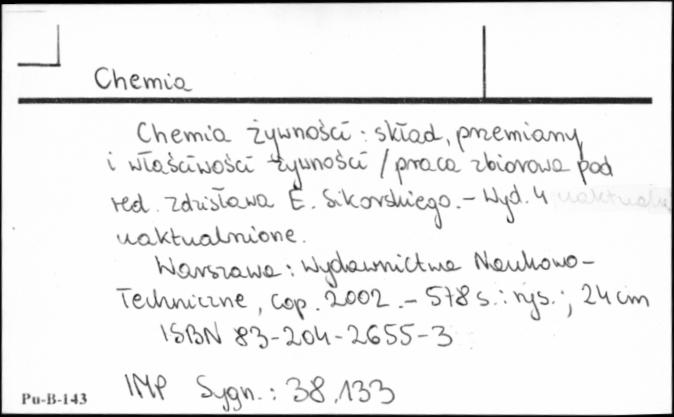 Chemia
Chemia żywności : skład, przemiany
i właściwości żywności / praca zbiorowa pod
red. Zdzisława E. Sikorskiego. - Wyd. 4
uaktualnione.
Warszawa : Wydawnictwa Naukowo-
Techniczne, cop. 2002. - 578 s. : rys. ; 24 cm
ISBN 83-204-2655-3
Pu-B-143 IMP Sygn.: 38.133